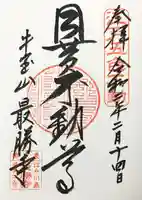 奉拝 令和二年二月十四日
目黄不動尊
牛宝山 最勝寺